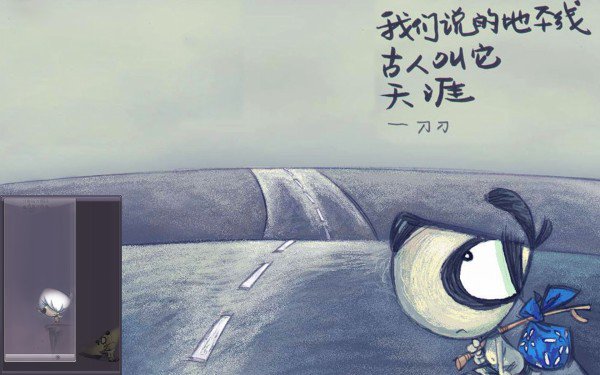 我们说的地平线
古人叫它
天涯
一刀刀